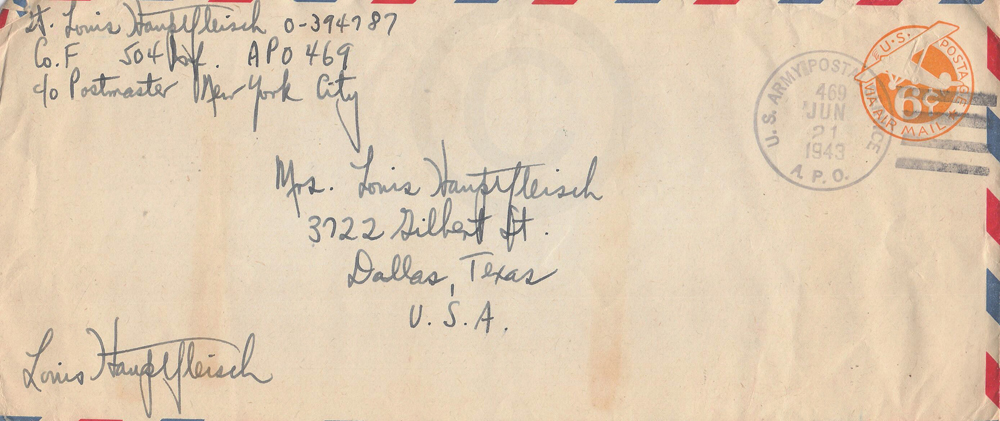 Lt. Louis Hauptfleisch O-394787
Co. F 504 Inf. APO 469
c/o Postmaster New York City
U.S. ARMY POSTAL SERVICE
469
JUN
21
1943
A.P.O.
U.S. POSTAGE
6¢
VIA AIR MAIL
Mrs. Louis Hauptfleisch
3722 Gilbert St.
Dallas, Texas
U.S.A.
Louis Hauptfleisch